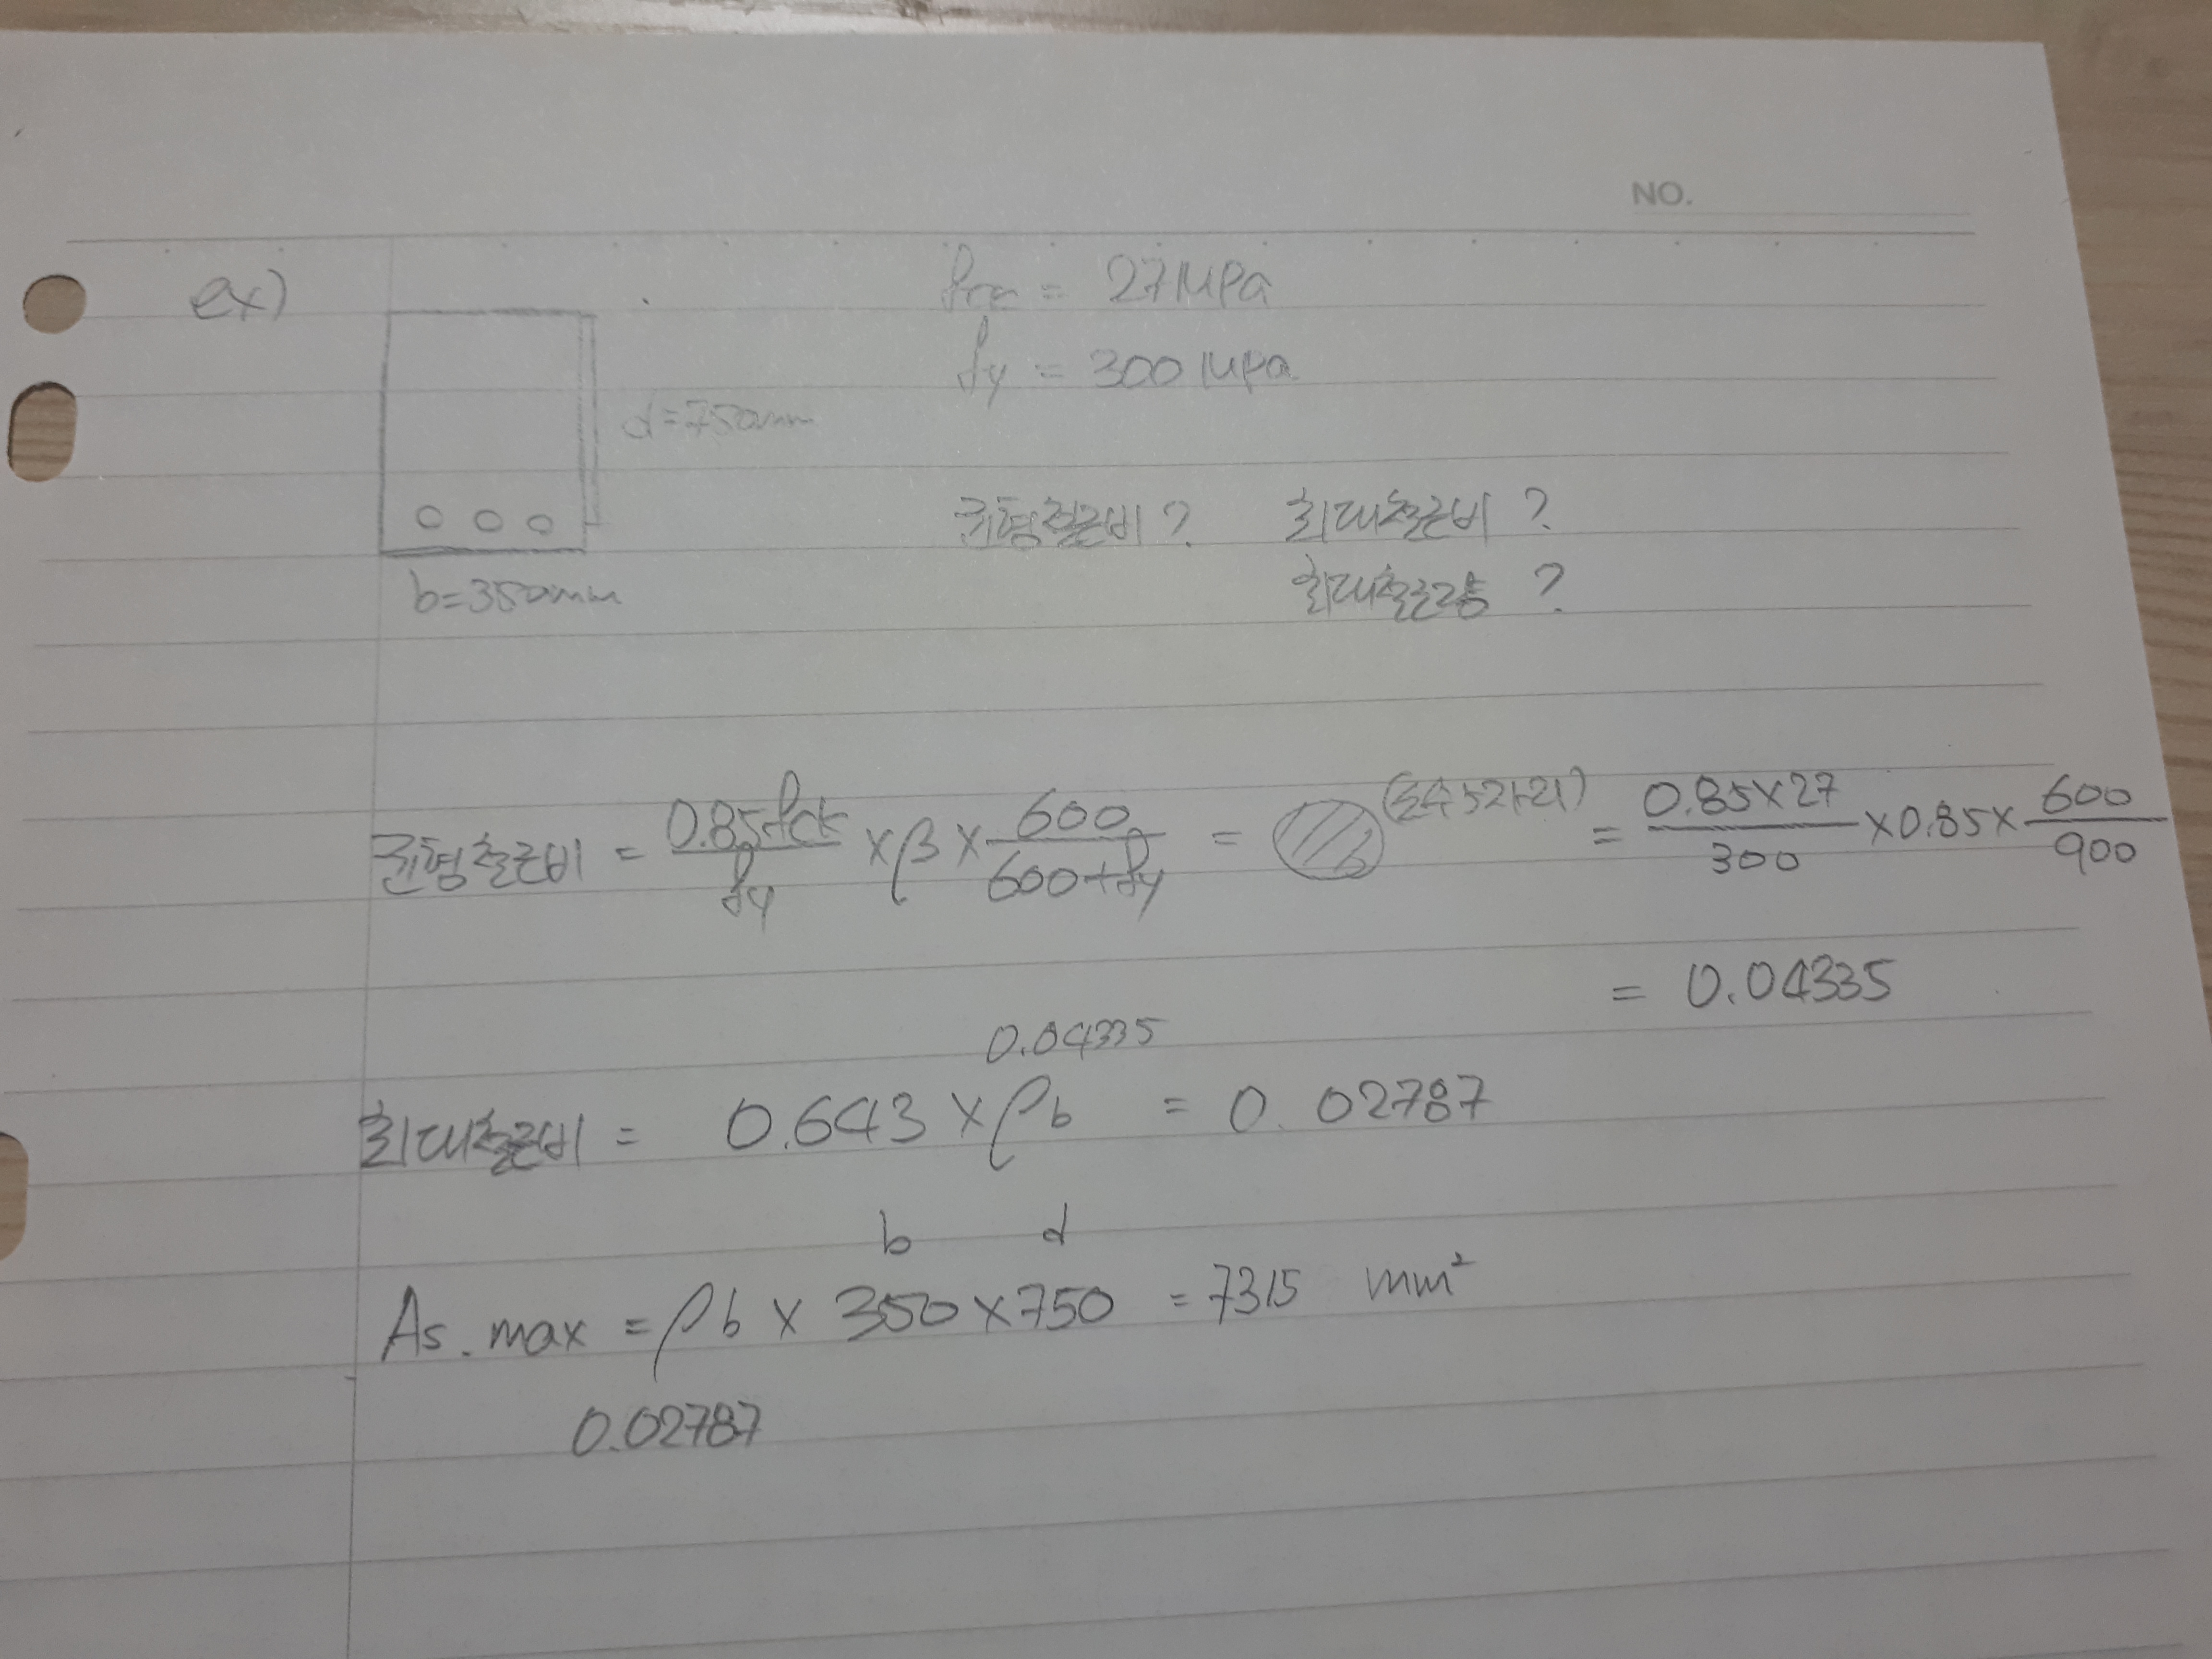 NO.
ex)
fck = 27MPa
fy = 300MPa
d=750mm
균형철근비? 최대철근비?
b=350mm 최대철근량?
균형철근비 = 0.85fck/fy × β × 600/600+fy = (소수5자리) = 0.85×27/300 ×0.85× 600/900
= 0.04335
0.04335
최대철근비 = 0.643 × ρb = 0.02787
b d
As.max = ρb × 350×750 = 7315 mm²
0.02787